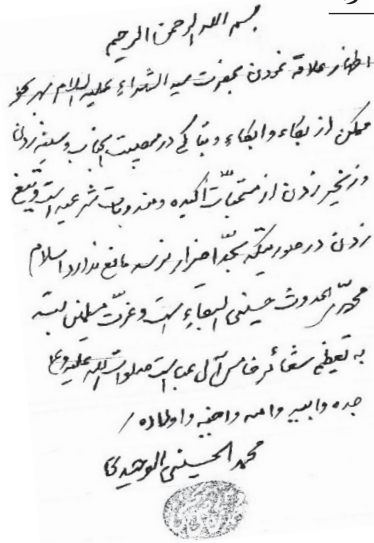 بسم الله الرحمن الرحیم
اظهار علاقه نمودن بحضرت سید الشهداء علیه السلام بهر نحو
ممکن از بکاء و ابکاء و تباکی در مصیبت آنجناب و سینه زدن
و زنجیر زدن از مستحبات اکیده و مندوبات شرعیه است و تیغ
زدن در صورتیکه بحد اضرار نرسد مانع ندارد اسلام
محمدی الحدوث حسینی البقاء است و عزت مسلمین بسته
به تعظیم شعائر خامس آل عبا است صلوات الله علیه و علی
جده و ابیه و امه و اخیه و اولاده /
محمد الحسینی الوحیدی